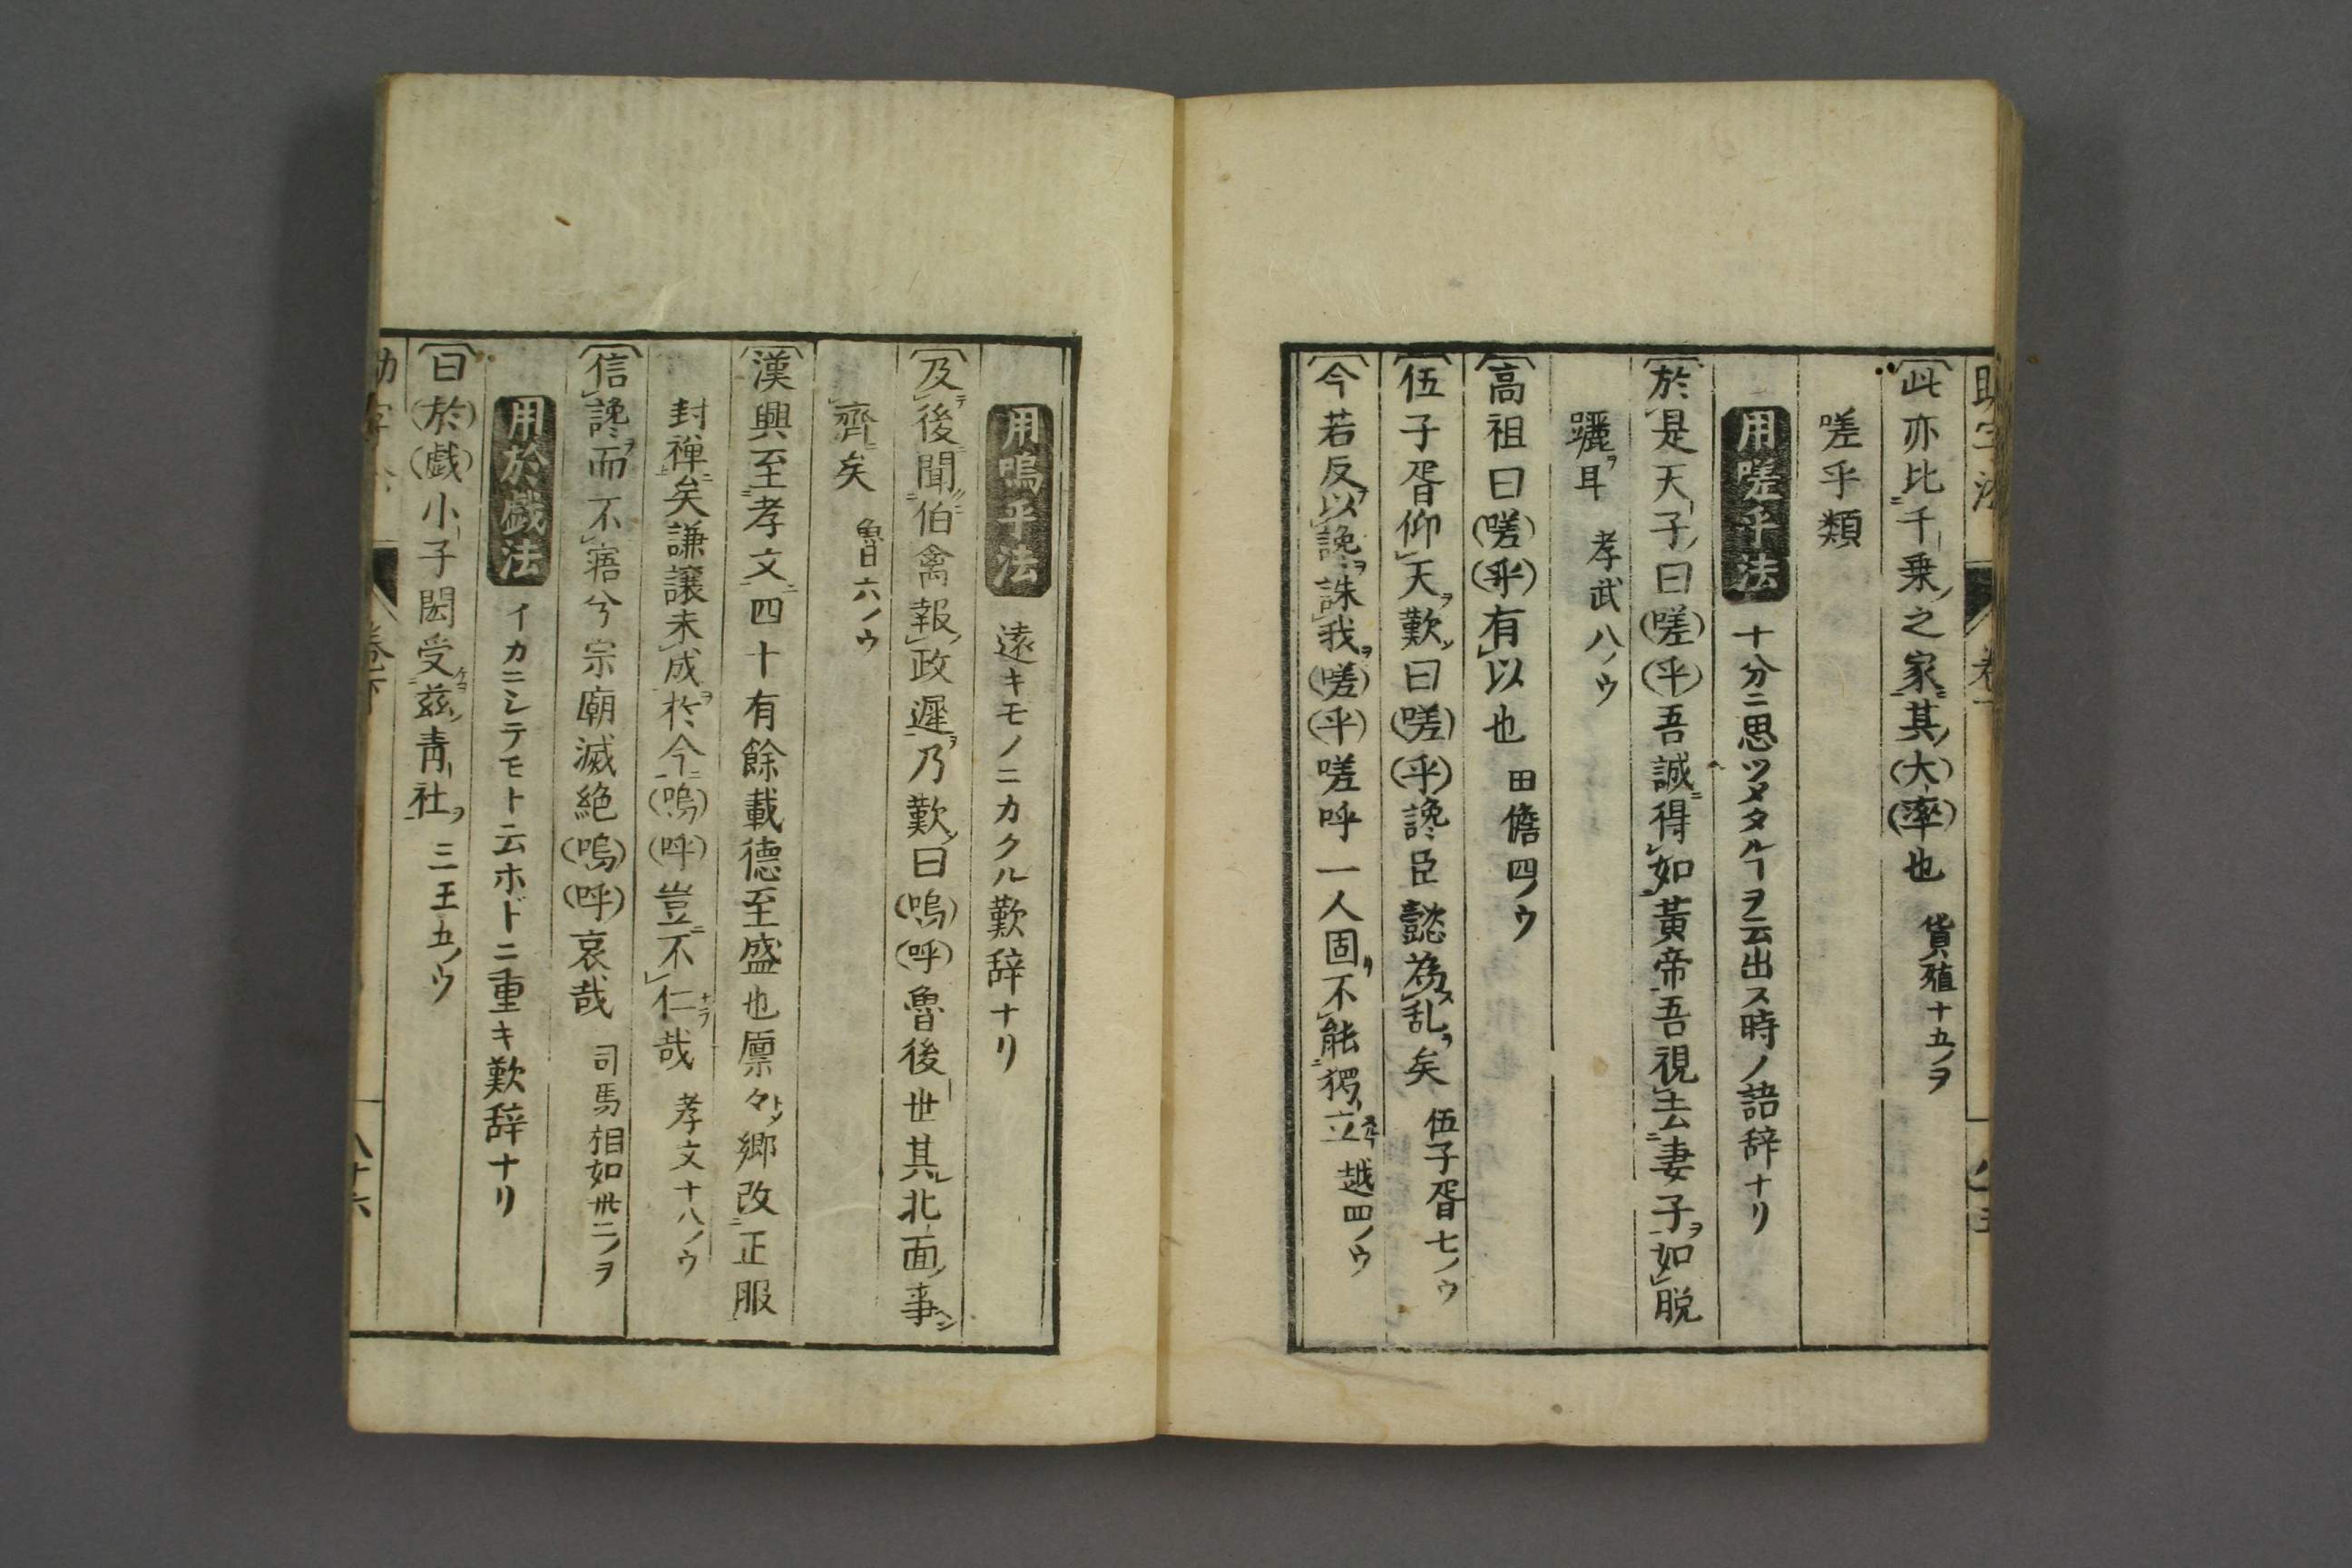 此亦比千乗之家其(大)(率)也 貨殖十五ノヲ
嗟乎類
用嗟乎法 十分ニ思ツメタルヿヲ云出ス時ノ語辞ナリ
於是天子曰(嗟)(乎)吾誠得如黃帝吾視去妻子如脱
躧耳 孝武八ノウ
高祖曰(嗟)(乎)有以也 田儋四ノウ
伍子胥仰天歎曰(嗟)(乎)讒臣嚭為乱矣 伍子胥七ノウ
今若反以讒誅我(嗟)(乎)嗟呼一人固不能獨立 越四ノウ
用嗚乎法 遠キモノニカクル歎辞ナリ
及後聞伯禽報政遲乃歎曰(嗚)(呼)魯後世其北面事
齊矣 魯六ノウ
漢興至孝文四十有餘載德至盛也廩々郷改正服
封禅矣謙譲未成於今(嗚)(呼)豈不仁哉 孝文十八ノウ
信讒而不寤兮宗廟滅絶(嗚)(呼)哀哉 司馬相如卅二ノヲ
用於戯法 イカニシテモト云ホドニ重キ歎辞ナリ
曰(於)(戯)小子閎受茲青社 三王五ノウ
卷下 八十六